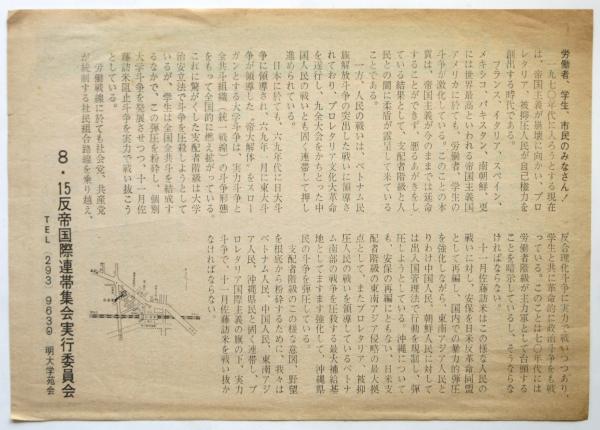 労働者、学生、市民のみなさん！
一九七〇年代に入ろうとする現在
は、帝国主義が崩壊に向かい、プロ
レタリア、被抑圧人民が自己権力を
創出する時代である。
フランス、イタリア、スペイン、
メキシコ、パキスタン、南朝鮮、更
には世界最高といわれる帝国主義国
アメリカに於ても、労働者、学生の
斗争が激化している。このことの本
質は、帝国主義が今のままでは延命
することができず、悪るあがきをし
ている結果として、支配者階級と人
民との間に矛盾が露呈して来ている
ことである。
一方、人民の戦いは、ベトナム民
族解放斗争の突出した戦いに領導さ
れており、プロレタリア文化大革命
を遂行し、九全大会をかちとった中
国人民の戦いとも固く連帯して押し
進められている。
日本に於ても、六九年代に日大斗
争に領導され、六九年、一月に東大斗
争が領導した“帝大解体”をスロー
ガンとする大学斗争は、実力斗争と
全共斗組織（統一戦線）の斗争形態
をもって全国的に燃え拡がっている。
これに驚がくした支配者階級は大学
治安立法で斗争を圧殺しようとして
いるが、学生は全国全共斗を結成す
るなかで、この弾圧を粉砕し、個別
大学斗争を発展させつつ、十一月佐
藤訪米阻止斗争を実力で戦い抜こう
としている。
労働戦線に於ても社会党、共産党
が統制する社民組合路線を乗り越え、
反合理化斗争に実力で戦いつつあり、
学生と共に革命的に政治斗争をも戦
っている。このことは七〇年代には
労働者階級が主力軍として台頭する
ことを暗示しているし、そうならな
ければならない。
十一月佐藤訪米はこの様な人民の
戦いに対し、安保を日米反革命同盟
として再編し、国内での暴力的弾圧
を強化しながら、東南アジア人民と
りわけ中国人民、朝鮮人民に対して
は出入国管理法で行動を規制し、弾
圧しようとしている。沖縄について
も、安保の再編にともない、日米支
配者階級の東南アジア侵略の最大拠
点として、またプロレタリア、被抑
圧人民の戦いを領導しているベトナ
ム南部の戦争を圧殺する最大補給基
地として ますます強化して、沖縄県
民の斗争を圧迫している。
支配者階級のこの様な意図、野望
を根底から粉砕するために、我々は
ベトナム人民、中国人民、東南アジ
ア人民、沖縄県民と固く連帯し、プ
ロレタリア国際主義の旗の下、実力
斗争で、十一月佐藤訪米を戦い抜か
なければならない。
8・15反帝国際連帯集会実行委員会
TEL 293 9639 明大学苑会